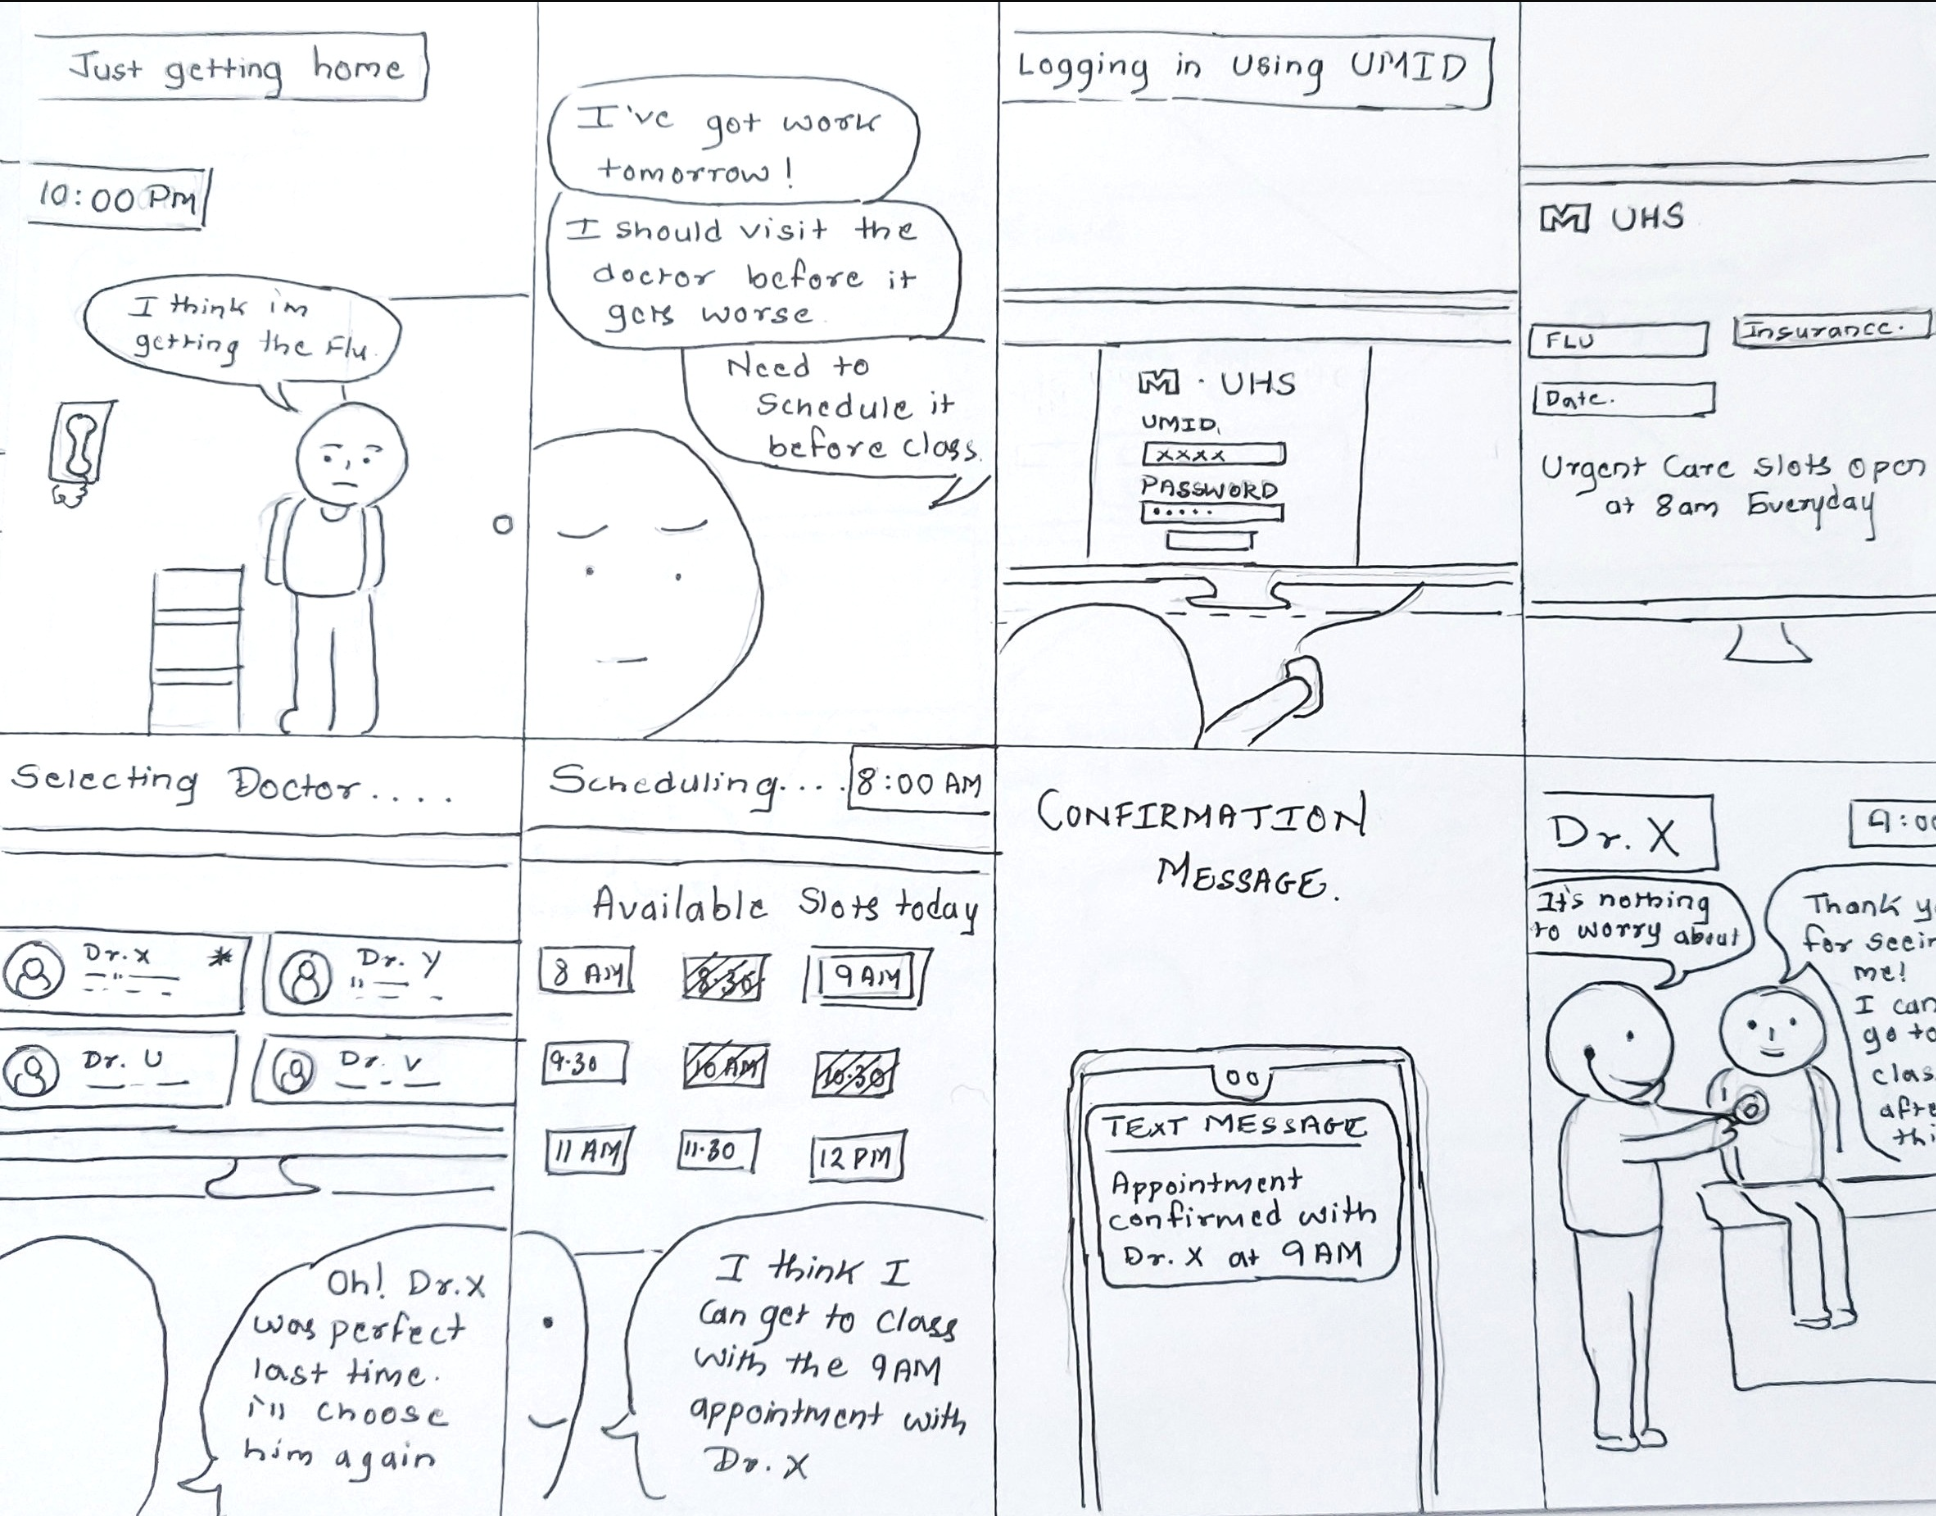 Just getting home
10:00 PM
I think i'm
getting the Flu.
I've got work
tomorrow!
I should visit the
doctor before it
gets worse
Need to
Schedule it
before class.
Logging in using UMID
M · UHS
UMID
xxxx
PASSWORD
M UHS
FLU
Insurance.
Date.
Urgent Care slots open
at 8am Everyday
Selecting Doctor....
Dr. X *
Dr. Y
Dr. U
Dr. V
Oh! Dr. X
was perfect
last time.
i'll choose
him again
Scheduling....
8:00 AM
Available Slots today
8 AM
8.30
9 AM
9.30
10 AM
10.30
11 AM
11.30
12 PM
I think I
can get to class
with the 9AM
appointment with
Dr. X
CONFIRMATION
MESSAGE.
TEXT MESSAGE
Appointment
confirmed with
Dr. X at 9AM
Dr. X
9:00
It's nothing
to worry about
Thank
for
me!
I can
go to